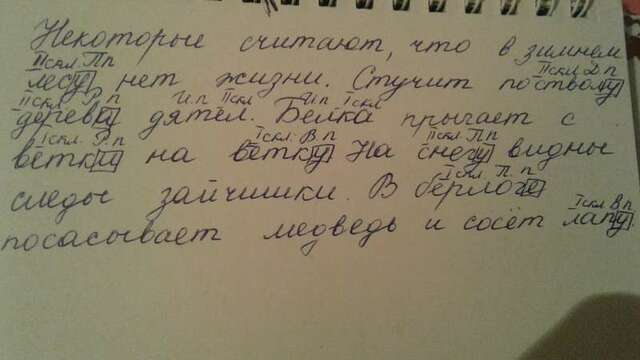 Некоторые считают, что в зимнем
IIскл. П.п IIскл Д.п
лесу нет жизни. Стучит по стволу
IIскл Р.п И.п IIскл И.п Iскл
дерева дятел. Белка прыгает с
Iскл. Р.п Iскл. В.п IIскл П.п
ветки на ветку. На снегу видны
Iскл П.п
следы зайчишки. В берлоге
Iскл В.п
посасывает медведь и сосёт лапу.